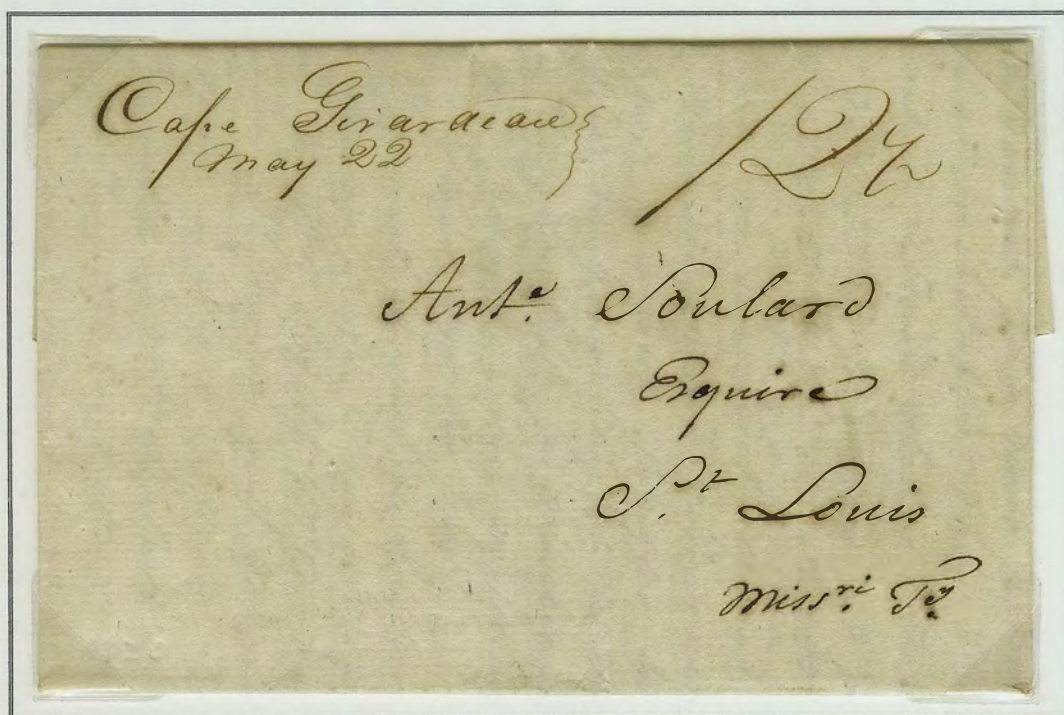 Cape Girardeau
May 22
12½
Ant.e Soulard
Esquire
S.t Louis
Miss.ri T.y